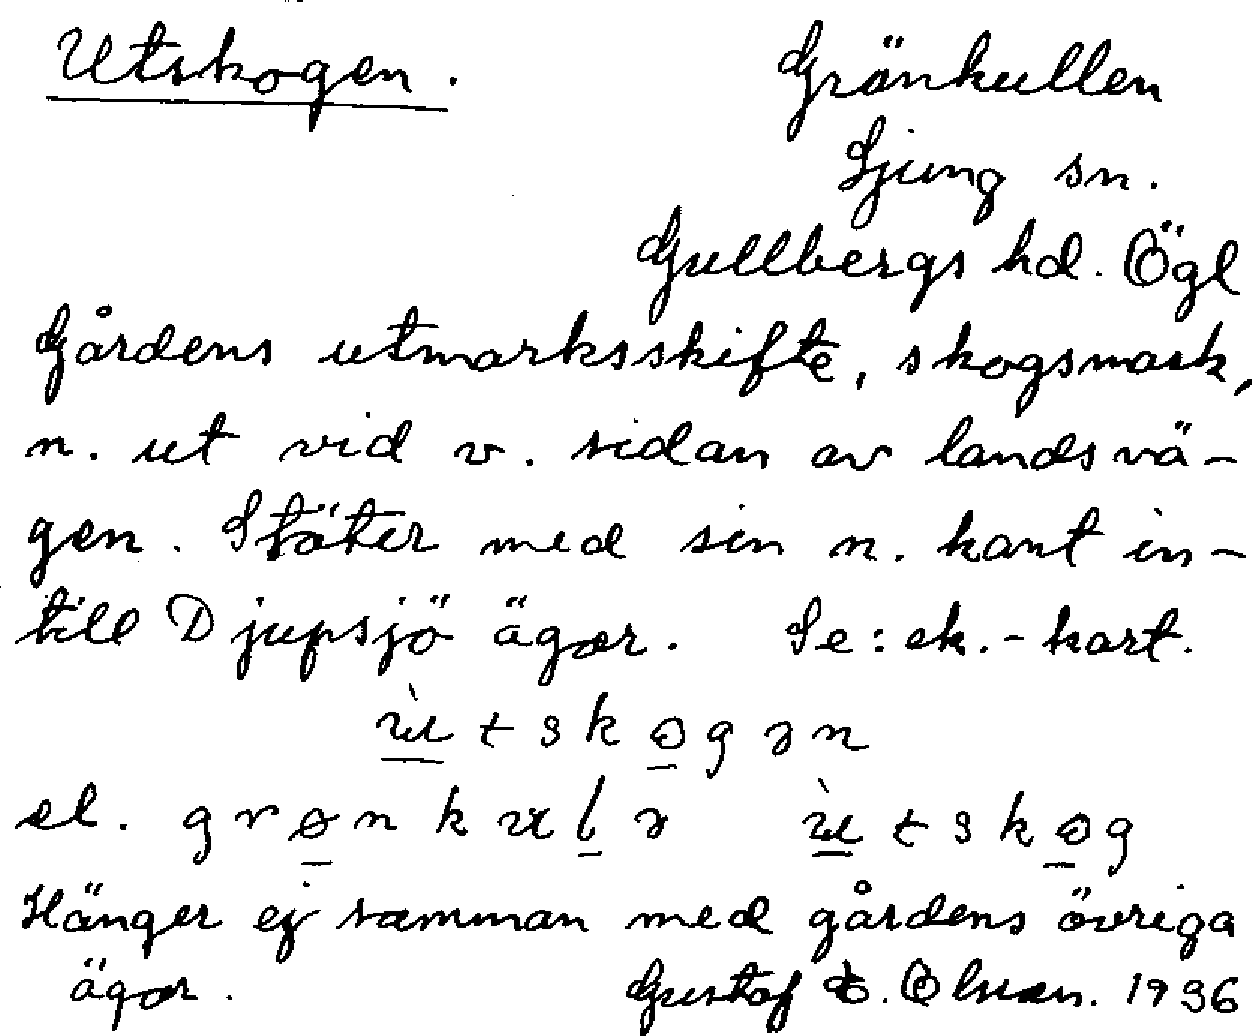 Utskogen.
Gränkullen
Ljung sn.
Gullbergs hd. Ögl
Gårdens utmarksskifte, skogsmark,
n. ut vid v. sidan av landsvä-
gen. Stöter med sin n. kant in-
till Djupsjö ägor. Se: ek.-kart.
ùtskogən
el. grønkulə ùtskog
Hänger ej samman med gårdens övriga
ägor. Gustaf Olsson. 1936